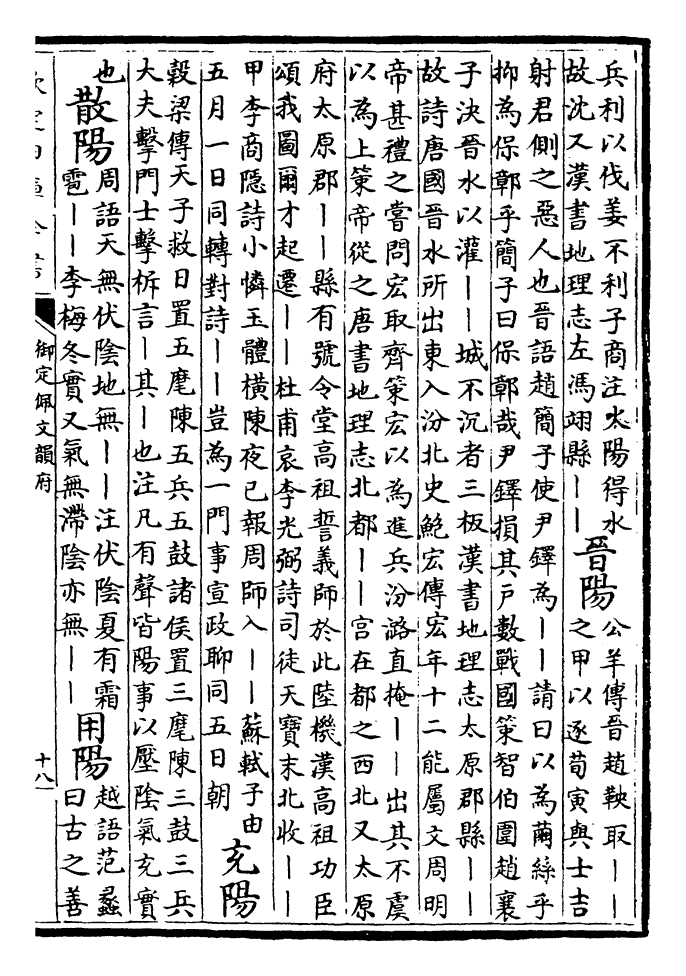 兵利以伐姜不利子商注水陽得水
故沈又漢書地理志左馮翊縣｜｜
晉陽
公羊傳晉趙鞅取｜｜
之甲以逐荀寅與士吉
射君側之惡人也晉語趙簡子使尹鐸為｜｜請曰以為繭絲乎
抑為保鄣乎簡子曰保鄣哉尹鐸損其户數戰國策智伯圍趙襄
子決晉水以灌｜｜城不沉者三板漢書地理志太原郡縣｜｜
故詩唐國晉水所出東入汾北史鮑宏傳宏年十二能屬文周明
帝甚禮之嘗問宏取齊策宏以為進兵汾潞直掩｜｜出其不虞
以為上策帝從之唐書地理志北都｜｜宫在都之西北又太原
府太原郡｜｜縣有號令堂高祖誓義師於此陸機漢高祖功臣
頌我圖爾才起遷｜｜杜甫哀李光弼詩司徒天寶末北收｜｜
甲李商隱詩小憐玉體橫陳夜已報周師入｜｜蘇軾子由
五月一日同轉對詩｜｜豈為一門事宣政聊同五日朝
充陽
穀梁傳天子救日置五麾陳五兵五鼓諸侯置三麾陳三鼓三兵
大夫擊門士擊柝言｜其｜也注凡有聲皆陽事以壓陰氣充實
也
散陽
周語天無伏陰地無｜｜注伏陰夏有霜
雹｜｜李梅冬實又氣無滯陰亦無｜｜
用陽
越語范蠡
曰古之善
欽定四庫全書
御定佩文韻府
十八